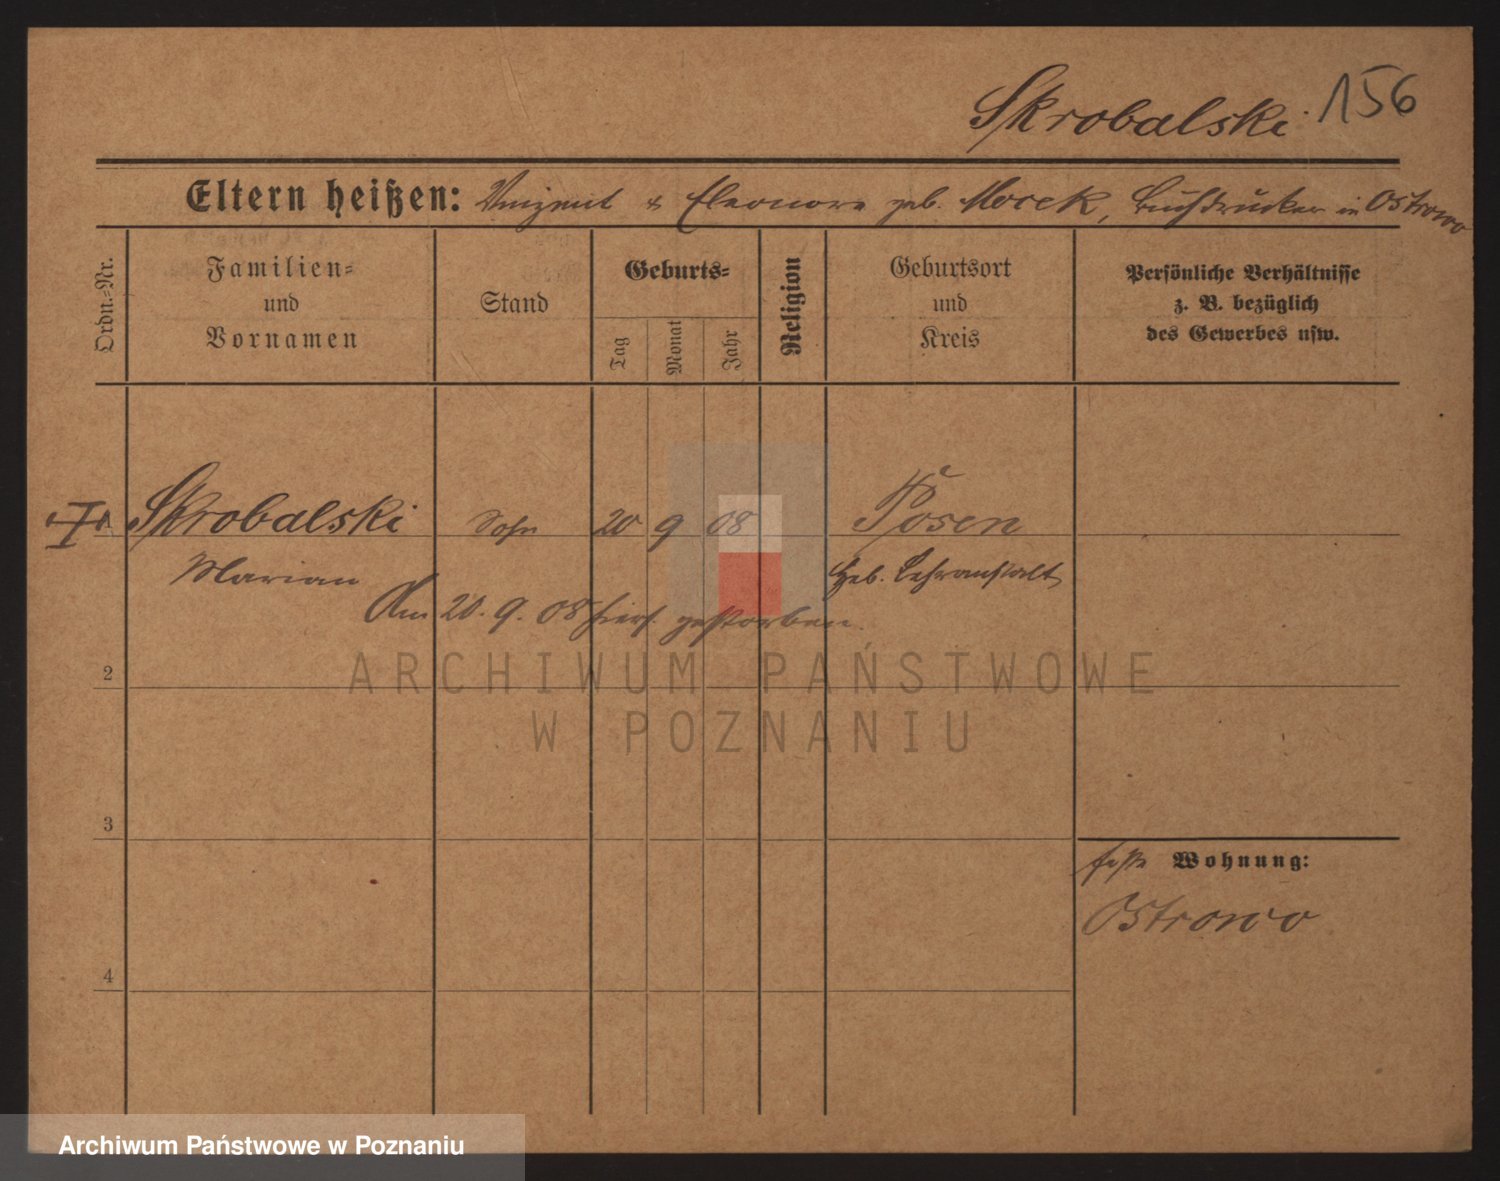 Skrobalski. 156
Eltern heißen: Vinzent & Eleonore geb. Mocek, Buchdrucker in Ostrowo
Ordn.-Nr.
Familien-
und
Vornamen
Stand
Geburts-
Tag
Monat
Jahr
Religion
Geburtsort
und
Kreis
Persönliche Verhältnisse
z. B. bezüglich
des Gewerbes usw.
Skrobalski Sohn 20 9 08 Posen
Marian Heb. Lehranstalt
Am 20. 9. 08 hier gestorben.
2
3
4
feste Wohnung:
Ostrowo
ARCHIWUM PAŃSTWOWE
W POZNANIU
Archiwum Państwowe w Poznaniu